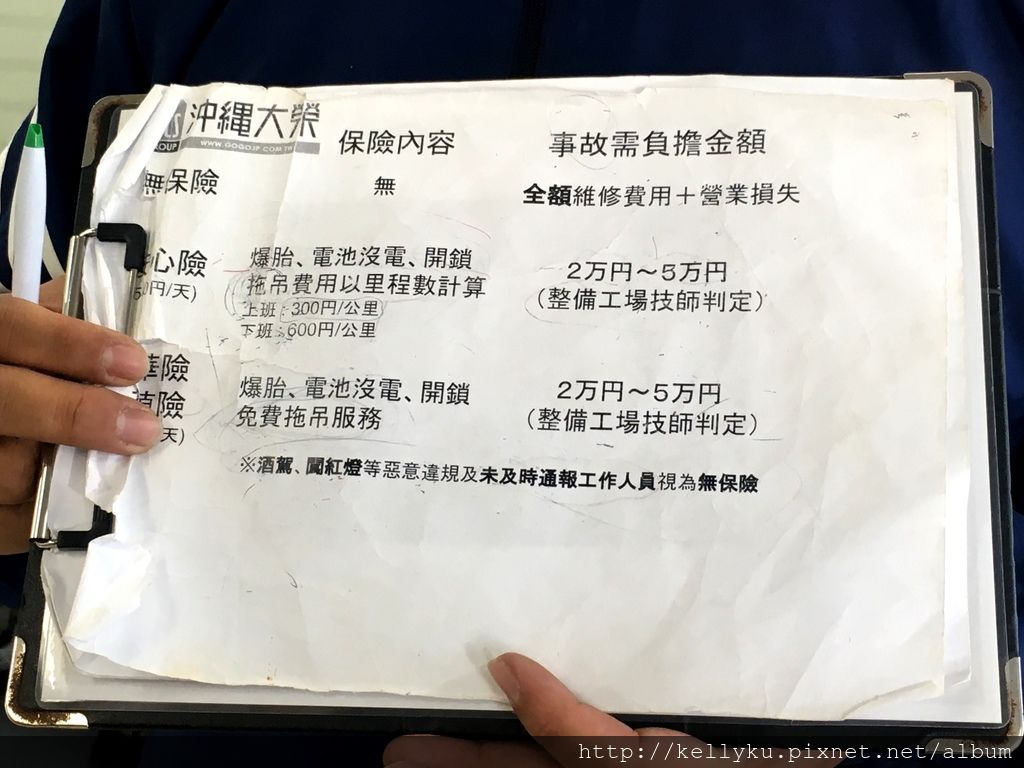 沖縄大榮
WWW.GOGOJP.COM.TW
保險內容
事故需負擔金額
無保險
無
全額維修費用＋營業損失
心險
0円/天)
爆胎、電池沒電、開鎖
拖吊費用以里程數計算
上班：300円/公里
下班：600円/公里
2万円～5万円
(整備工場技師判定)
華險
險
天)
爆胎、電池沒電、開鎖
免費拖吊服務
2万円～5万円
(整備工場技師判定)
※酒駕、闖紅燈等惡意違規及未及時通報工作人員視為無保險
http://kellyku.pixnet.net/album